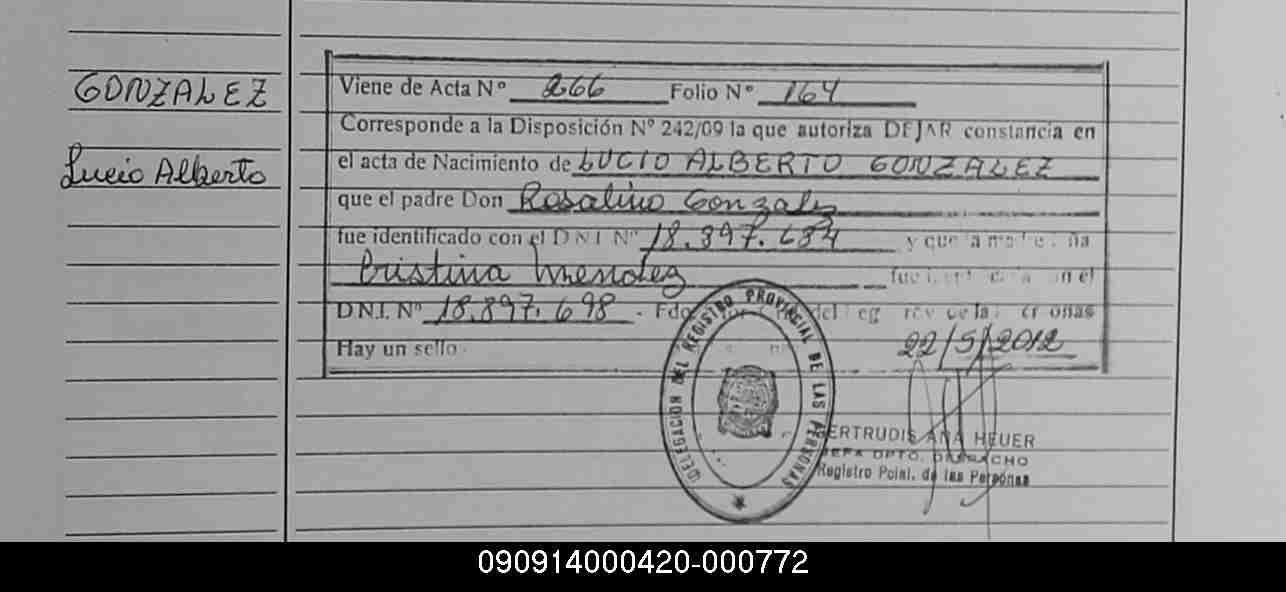 GONZALEZ
Lucio Alberto
Viene de Acta Nº 266 Folio Nº 164
Corresponde a la Disposición Nº 242/09 la que autoriza DEJAR constancia en
el acta de Nacimiento de LUCIO ALBERTO GONZALEZ
que el padre Don Rosalino Gonzalez
fue identificado con el D N I Nº 18.897.684 y que la madre
Cristina Mendez fue en el
D.N.I. Nº 18.897.698 - Fdo del de las
Hay un sello.
22/5/2012
DELEGACION DEL REGISTRO PROVINCIAL DE LAS PERSONAS
GERTRUDIS ANA HEUER
JEFA DPTO. DESPACHO
Registro Pcial. de las Personas
090914000420-000772